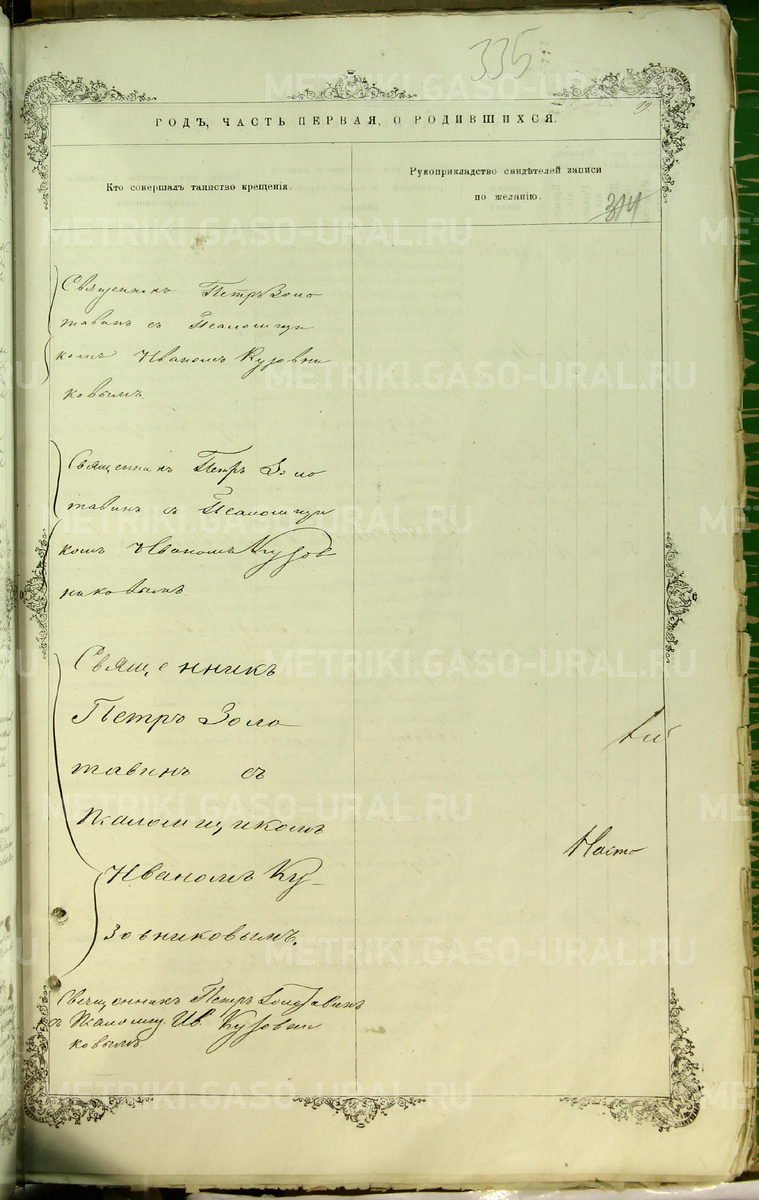 335
19
ГОДЪ, ЧАСТЬ ПЕРВАЯ, О РОДИВШИХСЯ.
Кто совершалъ таинство крещенія.
Рукоприкладство свидѣтелей записи
по желанію.
314
Священникъ Петръ Золо
тавинъ съ Псаломщи
комъ Иваномъ Кузовни
ковымъ.
Священникъ Петръ Золо
тавинъ съ Псаломщи
комъ Иваномъ Кузов
никовымъ
Священникъ
Петръ Золо
тавинъ съ
Псаломщикомъ
Иваномъ Ку-
зовниковымъ.
Насто
Священникъ Петръ Золотавинъ
съ Псаломщ. Ив. Кузовни
ковымъ.
METRIKI.GASO-URAL.RU